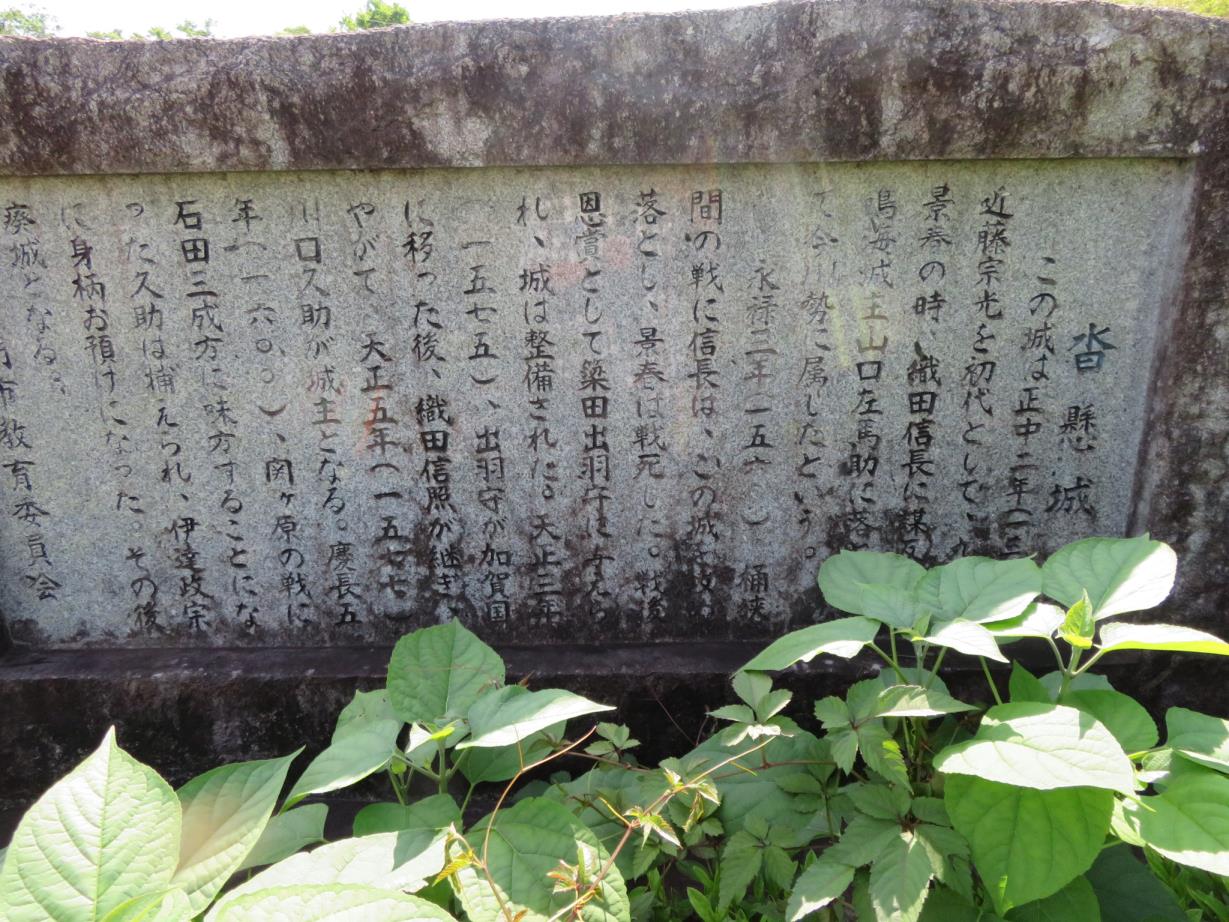 沓懸城
この城は正中二年(一三
近藤宗光を初代として、九
景春の時、織田信長に謀反
鳴海城主山口左馬助に
て今川勢に属したという。
永禄三年(一五六〇)桶狭
間の戦に信長は、この城を攻
落とし、景春は戦死した。戦後
恩賞として簗田出羽守に与えら
れ、城は整備された。天正三年
(一五七五)、出羽守が加賀国
に移った後、織田信照が継ぎ、
やがて、天正五年(一五七七)
川口久助が城主となる。慶長五
年(一六〇〇)、関ヶ原の戦に
石田三成方に味方することにな
った久助は捕えられ、伊達政宗
に身柄お預けになった。その後
廃城となる。
市教育委員会